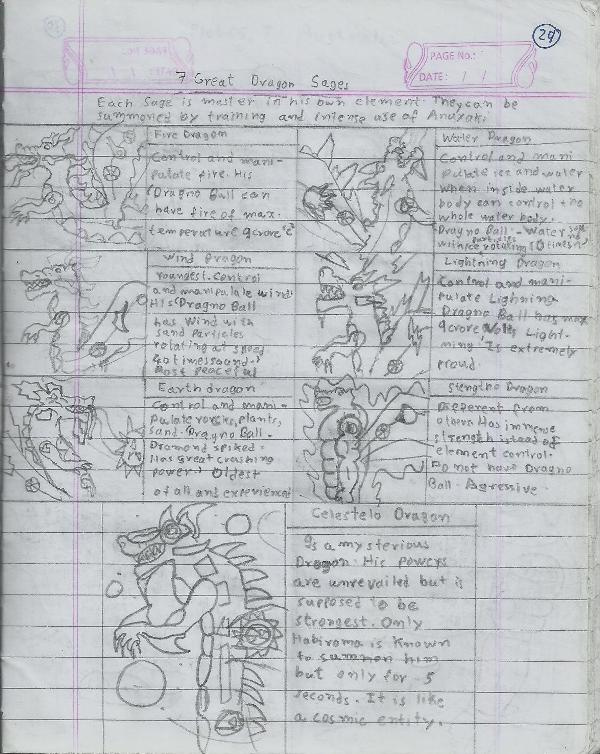 24
PAGE No.:
DATE: / /
7 Great Dragon Sages
Each Sage is master in his own element. They can be
summoned by training and intense use of Anuxaki
Fire Dragon
Control and mani-
pulate fire. His
Dragno Ball can
have fire of max.
temperature 9crore °C
Water Dragon
Control and mani
pulate ice and water
when inside water
body can control the
whole water body.
Dragno Ball - Water
with ice particles rotating
Wind Dragon
Youngest. Control
and manipulate wind.
His Dragno Ball
has wind with
sand Particles
rotating at speed
40timessound.
Most peaceful
Lightning Dragon
Control and mani-
pulate Lighning
Dragno Ball has max
9crore Volts Light-
ning. Is extremely
proud.
Earth dragon
Control and mani-
pulate rocks, plants,
sand. Dragno Ball
Diamond spiked.
Has great crushing
power. Oldest
of all and experienced
Strengtho Dragon
Different from
others. Has immense
strength istead of
element control.
Do not have Dragno
Ball. Agressive.
Celestelo Dragon
Is a mysterious
Dragon. His Powers
are unrevailed but is
supposed to be
strongest. Only
Habiroma is known
to summon him
but only for 5
seconds. It is like
a cosmic entity.